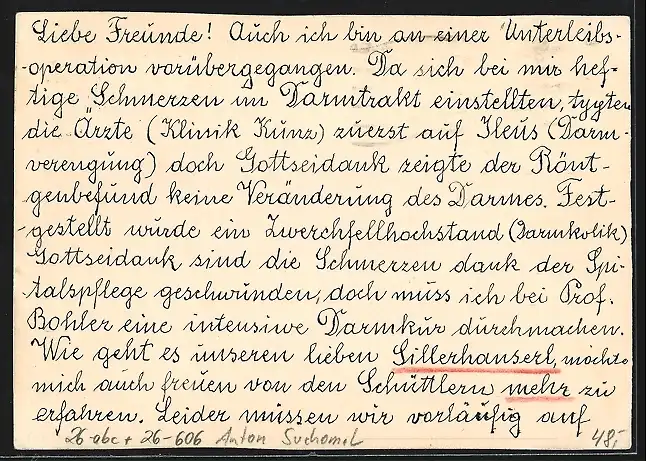 Liebe Freunde! Auch ich bin an einer Unterleibs-
-operation vorübergegangen. Da sich bei mir hef-
tige Schmerzen im Darmtrakt einstellten, tygten
die Ärzte (Klinik Kunz) zuerst auf Ileus (Darm-
verengung) doch Gottseidank zeigte der Rönt-
genbefund keine Veränderung des Darmes. Fest-
-gestellt wurde ein Zwerchfellhochstand (Darmkolik)
Gottseidank sind die Schmerzen dank der Spi-
-talspflege geschwunden, doch muss ich bei Prof.
Bohler eine intensiwe Darmkur durchmachen.
Wie geht es unseren lieben Sillerhanserl, möchte
mich auch freuen von den Schüttlern mehr zu
erfahren. Leider müssen wir vorläufig auf
26-abc + 26-606 Anton Suchomel 48,-